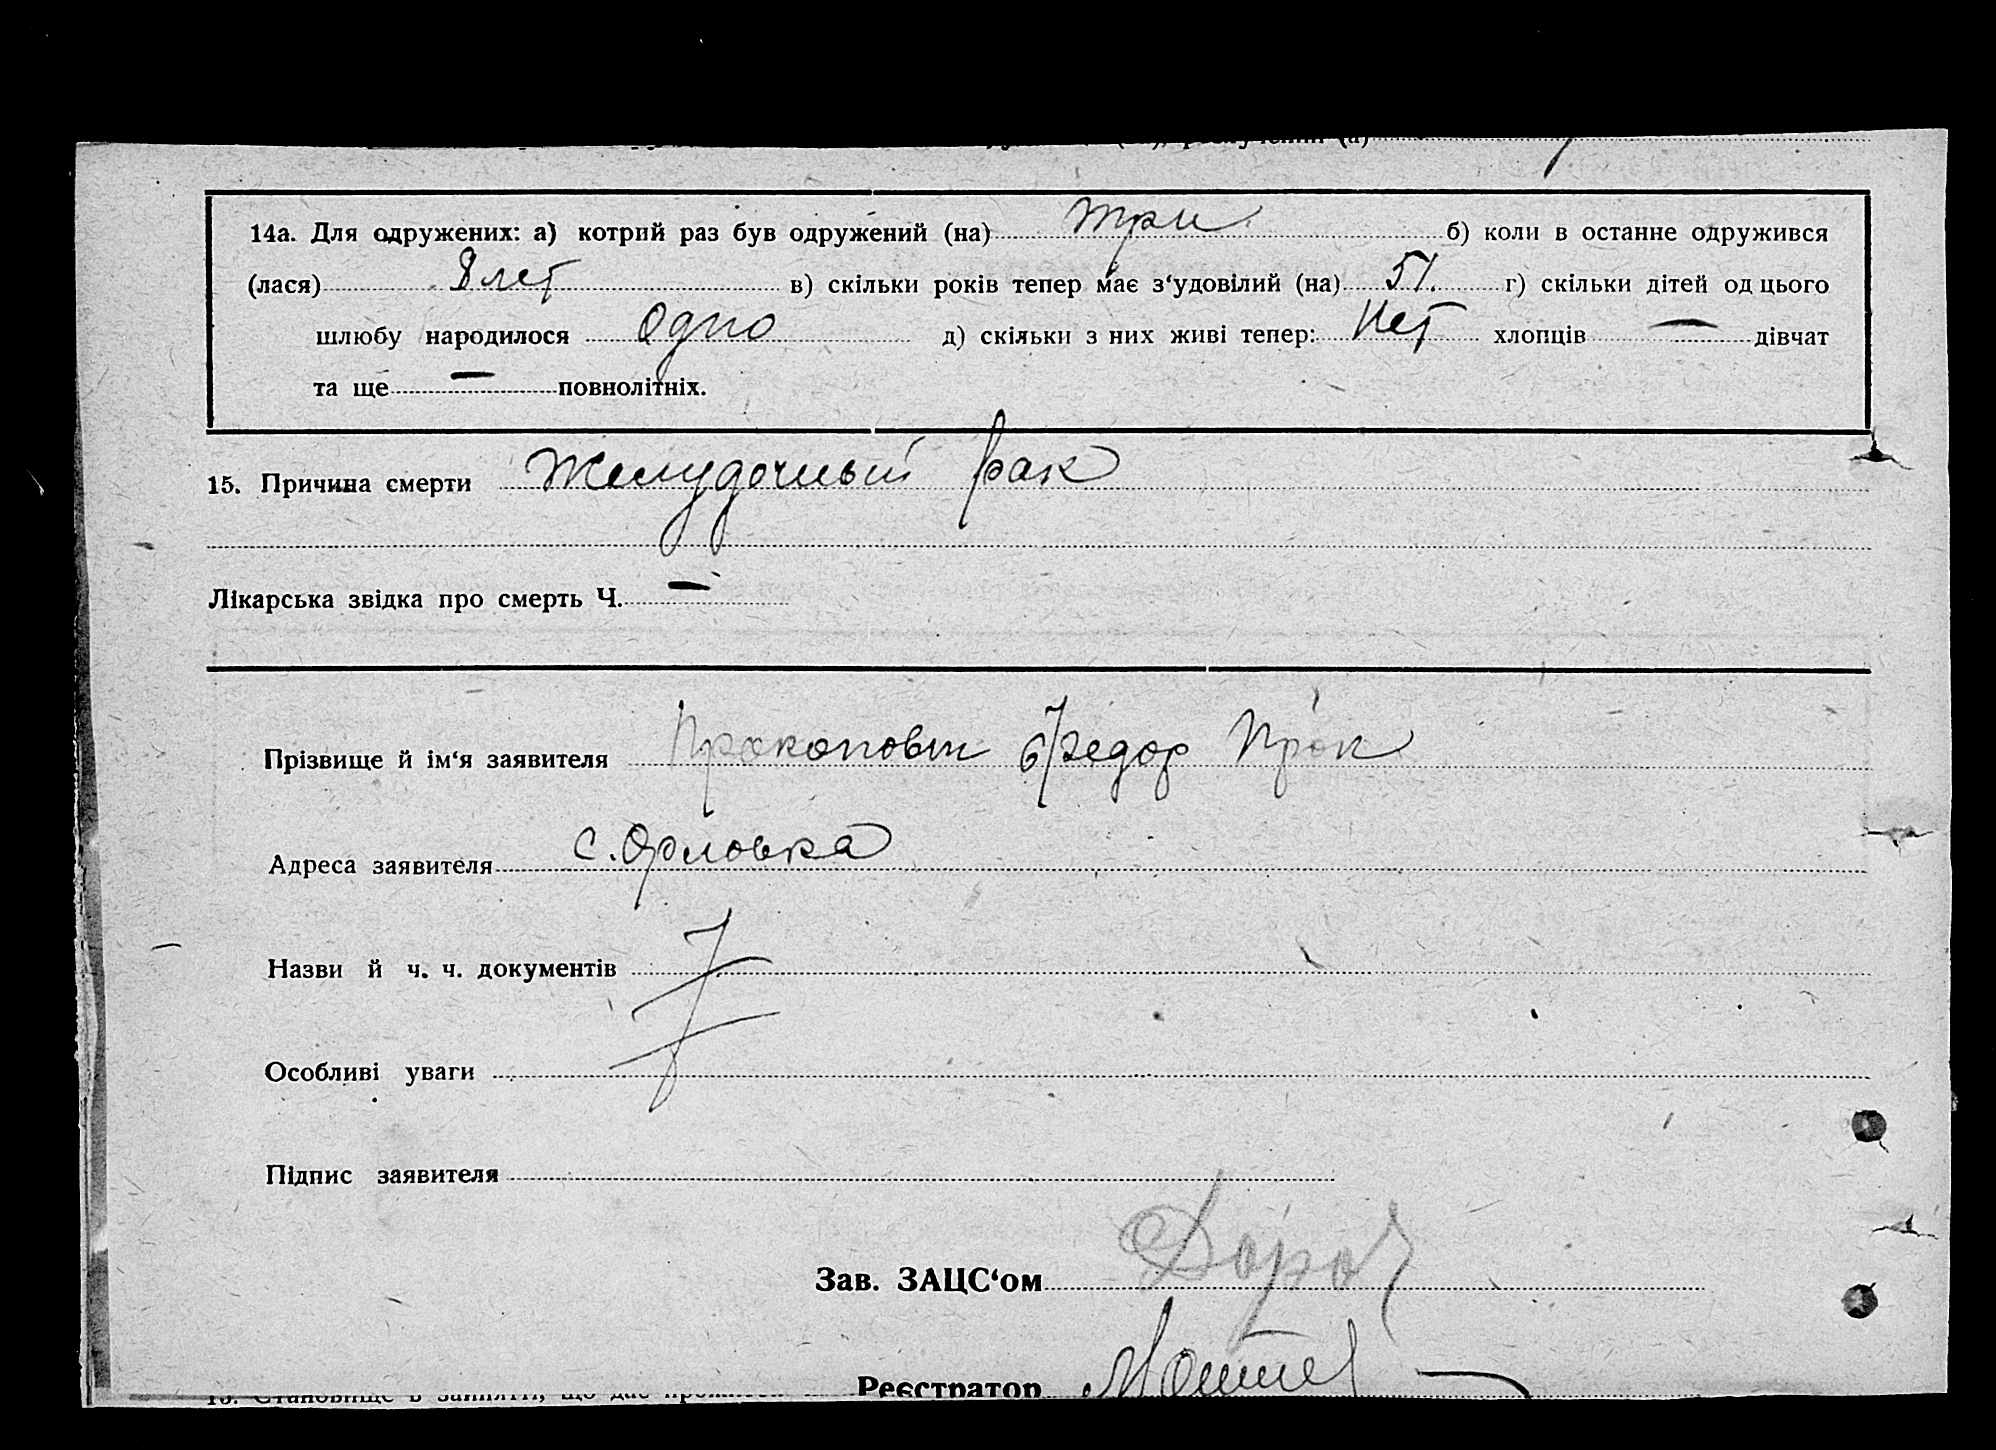 14а. Для одружених: а) котрий раз був одружений (на) три б) коли в останне одружився
(лася) 8 лет в) скільки років тепер має з‘удовілий (на) 51. г) скільки дітей од цього
шлюбу народилося Одно д) скільки з них живі тепер: Нет хлопців — дівчат
та ще — повнолітніх.
15. Причина смерти Желудочный рак
Лікарська звідка про смерть Ч. —
Прізвище й ім‘я заявителя Прокопович Федор Прок
Адреса заявителя с. Орловка
Назви й ч. ч. документів
Особливі уваги
Підпис заявителя
Зав. ЗАЦС‘ом
Реєстратор